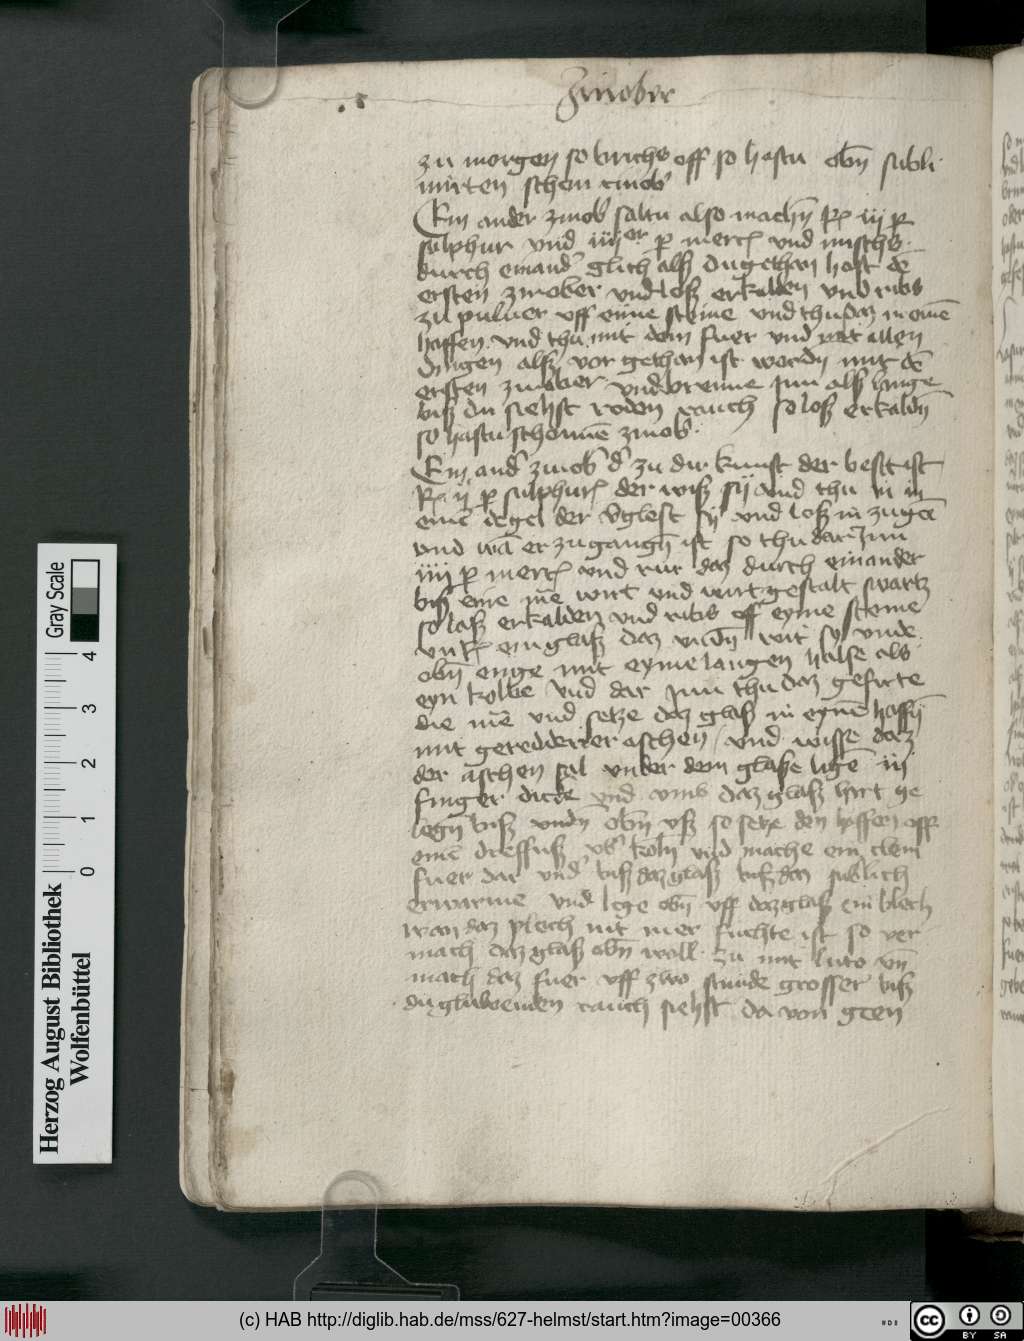 Zinober
zu morgen so brichs off so hastu obn̄ subli
mirten schon zinob'
Ein ander zinob' saltu also mach̄n Rx iij p̲
sulphur vnd iiij er p̲ merc̄ vnd mischs
durch einand' glich alß du gethan host dē
ersten zinober vnd loß erkalden vnd ribs
zu puluer vff eime steine vnd thu daz in einē
haffen vnd thu mit dem fuer vnd mit allen
dingen alß vor gethan ist wordn̄ mit dē
ersten zinober vnd brenne jnn alß lange
biß du siehst roden rauch so loß erkaldn̄
so hastu schonnē zinob'
Ein and' zinob' d' zu dir kunst der best ist
Rx ij p̲ sulphur̄ der wiß sy vnd thu in in
einē degel der v'glest sy vnd loß in zugēn
vnd wā er zugangn̄ ist so thu dar Inn
iiij p̲ merc̄ vnd rur daz durch einander
biß eine mē wirt vnd wirt gestalt swartz
so laß erkalden vnd ribs off eyme steine
vn̄ Rx ein glaß daz vndn̄ wit sy vnde
obn̄ enge mit eyme langen halse als
eyn kolbe vnd dar jnn thu daz gesirte
die mē vnd setze daz glaß in eynē haffn̄
mit geredderter aschen vnd wisse daz
der aschen sal vnder dem glase ligē iij
finger dicke vnd vmb daz glaß hirt ge
legn̄ biß vndn̄ obn̄ vß so setze den haffen off
einē dreffuß vb' koln̄ vnd mache ein clein
fuer dar vnd' biß daz glaß biß daz sublich
erwarme vnd lege obn̄ vff daz glaß ein blech
wan daz plech nit mer fuchte ist so ver
mach daz glaß obn̄ woll zu mit luto vn̄
mach daz fuer vff zwo stunde grosser biß
du gluwenden rauch siehst da von gen
Herzog August Bibliothek
Wolfenbüttel
Gray Scale
0 1 2 3 4
(c) HAB http://diglib.hab.de/mss/627-helmst/start.htm?image=00366
cc BY SA